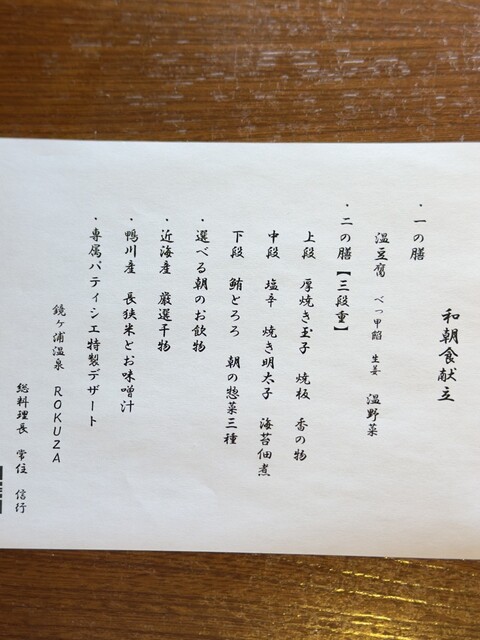 和朝食献立
・一の膳
温豆腐 べっ甲餡 生姜 温野菜
・二の膳【三段重】
上段 厚焼き玉子 焼板 香の物
中段 塩辛 焼き明太子 海苔佃煮
下段 鮪とろろ 朝の惣菜三種
・選べる朝のお飲物
・近海産 厳選干物
・鴨川産 長狭米とお味噌汁
・専属パティシエ特製デザート
鏡ヶ浦温泉 ROKUZA
総料理長 常住 信行